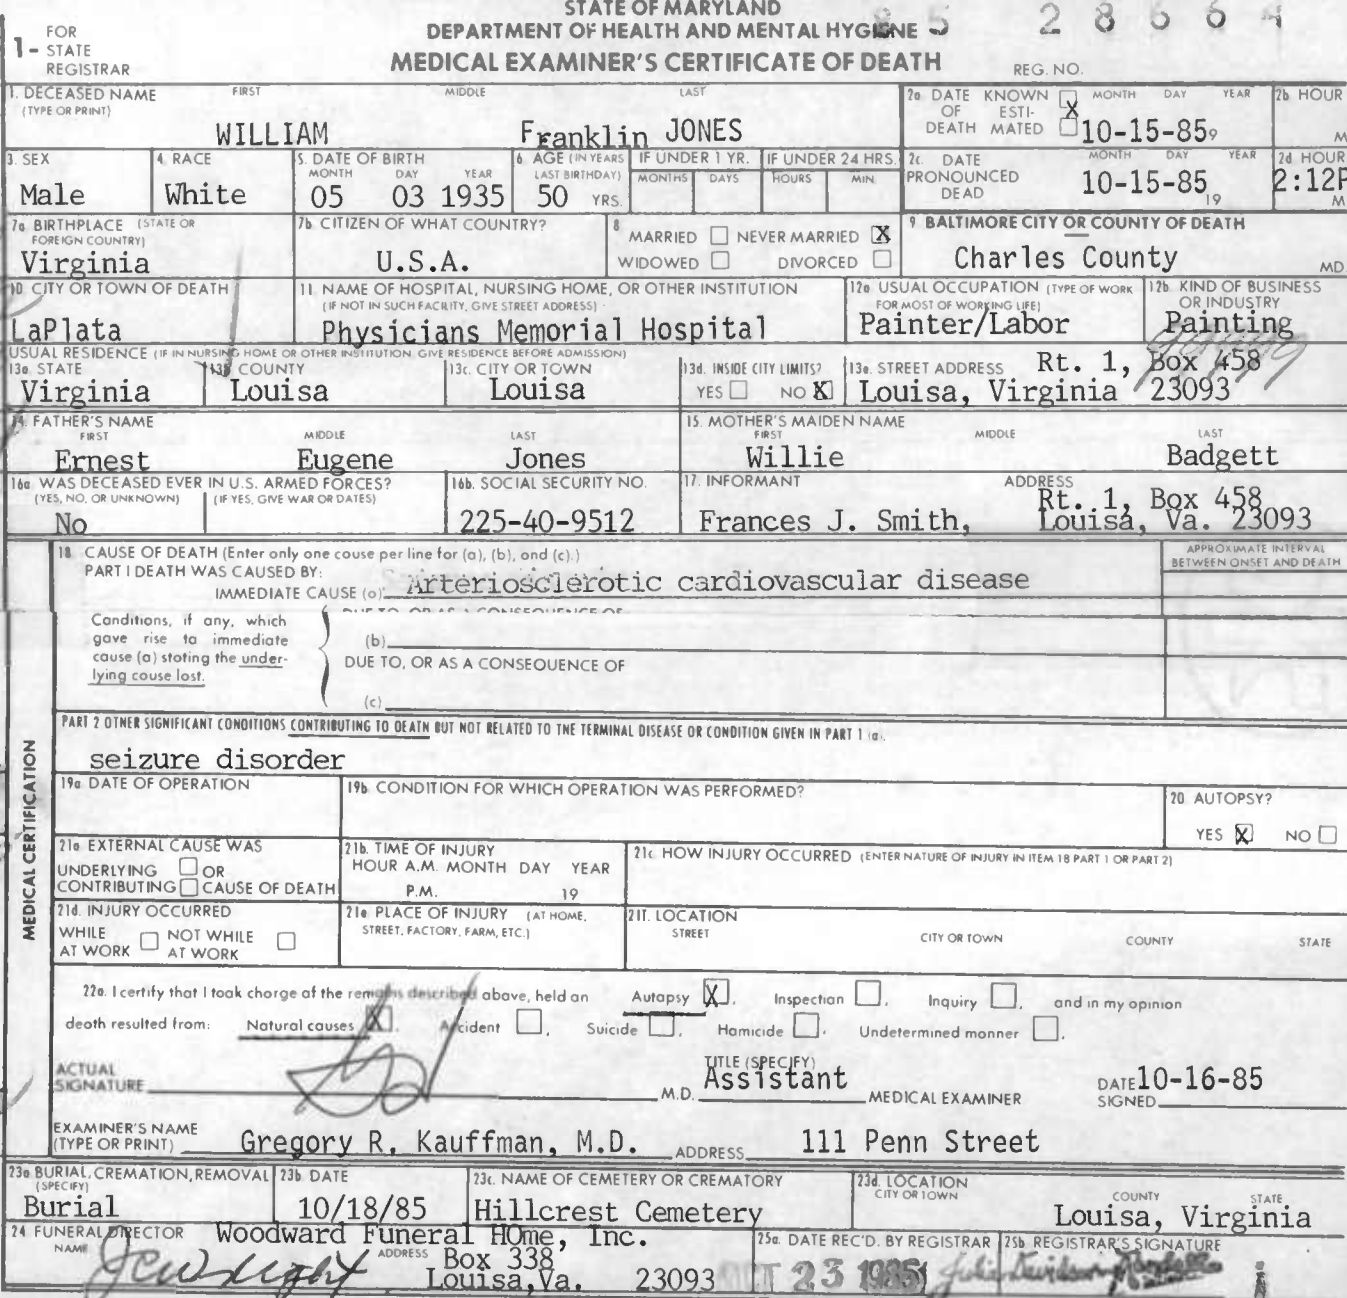 STATE OF MARYLAND
DEPARTMENT OF HEALTH AND MENTAL HYGIENE
MEDICAL EXAMINER'S CERTIFICATE OF DEATH
FOR
1- STATE
REGISTRAR
REG. NO.
1. DECEASED NAME FIRST MIDDLE LAST
(TYPE OR PRINT)
WILLIAM Franklin JONES
2a DATE KNOWN MONTH DAY YEAR
OF ESTI-
DEATH MATED X 10-15-85
2b HOUR
M
3. SEX
Male
4. RACE
White
5. DATE OF BIRTH
MONTH DAY YEAR
05 03 1935
6. AGE (IN YEARS
LAST BIRTHDAY)
50 YRS.
IF UNDER 1 YR.
MONTHS DAYS
IF UNDER 24 HRS.
HOURS MIN.
2c. DATE MONTH DAY YEAR
PRONOUNCED
DEAD 10-15-85 19
2d HOUR
2:12P
M
7a BIRTHPLACE (STATE OR
FOREIGN COUNTRY)
Virginia
7b CITIZEN OF WHAT COUNTRY?
U.S.A.
8 MARRIED NEVER MARRIED X
WIDOWED DIVORCED
9 BALTIMORE CITY OR COUNTY OF DEATH
Charles County MD.
10. CITY OR TOWN OF DEATH
LaPlata
11. NAME OF HOSPITAL, NURSING HOME, OR OTHER INSTITUTION
(IF NOT IN SUCH FACILITY, GIVE STREET ADDRESS)
Physicians Memorial Hospital
12a USUAL OCCUPATION (TYPE OF WORK
FOR MOST OF WORKING LIFE)
Painter/Labor
12b KIND OF BUSINESS
OR INDUSTRY
Painting
USUAL RESIDENCE (IF IN NURSING HOME OR OTHER INSTITUTION GIVE RESIDENCE BEFORE ADMISSION)
13a. STATE
Virginia
13b COUNTY
Louisa
13c. CITY OR TOWN
Louisa
13d. INSIDE CITY LIMITS?
YES NO X
13e. STREET ADDRESS Rt. 1, Box 458
Louisa, Virginia 23093
14. FATHER'S NAME
FIRST MIDDLE LAST
Ernest Eugene Jones
15. MOTHER'S MAIDEN NAME
FIRST MIDDLE LAST
Willie Badgett
16a WAS DECEASED EVER IN U.S. ARMED FORCES?
(YES, NO, OR UNKNOWN) (IF YES, GIVE WAR OR DATES)
No
16b. SOCIAL SECURITY NO.
225-40-9512
17. INFORMANT ADDRESS
Rt. 1, Box 458
Frances J. Smith, Louisa, Va. 23093
18 CAUSE OF DEATH (Enter only one cause per line for (a), (b), and (c).)
PART I DEATH WAS CAUSED BY:
IMMEDIATE CAUSE (a) Arteriosclerotic cardiovascular disease
APPROXIMATE INTERVAL
BETWEEN ONSET AND DEATH
DUE TO, OR AS A CONSEQUENCE OF
Conditions, if any, which
gave rise to immediate
cause (a) stating the under-
lying cause last.
(b)
DUE TO, OR AS A CONSEQUENCE OF
(c)
PART 2 OTHER SIGNIFICANT CONDITIONS CONTRIBUTING TO DEATH BUT NOT RELATED TO THE TERMINAL DISEASE OR CONDITION GIVEN IN PART 1 (a).
seizure disorder
MEDICAL CERTIFICATION
19a DATE OF OPERATION
19b CONDITION FOR WHICH OPERATION WAS PERFORMED?
20 AUTOPSY?
YES X NO
21a EXTERNAL CAUSE WAS
UNDERLYING OR
CONTRIBUTING CAUSE OF DEATH
21b. TIME OF INJURY
HOUR A.M. MONTH DAY YEAR
P.M. 19
21c HOW INJURY OCCURRED (ENTER NATURE OF INJURY IN ITEM 18 PART 1 OR PART 2)
21d. INJURY OCCURRED
WHILE NOT WHILE
AT WORK AT WORK
21e PLACE OF INJURY (AT HOME,
STREET, FACTORY, FARM, ETC.)
21f. LOCATION
STREET CITY OR TOWN COUNTY STATE
22a. I certify that I took charge of the remains described above, held an Autopsy X, Inspection, Inquiry, and in my opinion
death resulted from: Natural causes X, Accident, Suicide, Homicide, Undetermined manner.
ACTUAL
SIGNATURE M.D.
TITLE (SPECIFY)
Assistant MEDICAL EXAMINER
DATE 10-16-85
SIGNED
EXAMINER'S NAME
(TYPE OR PRINT) Gregory R. Kauffman, M.D. ADDRESS 111 Penn Street
23a BURIAL, CREMATION, REMOVAL
(SPECIFY)
Burial
23b. DATE
10/18/85
23c. NAME OF CEMETERY OR CREMATORY
Hillcrest Cemetery
23d. LOCATION
CITY OR TOWN COUNTY STATE
Louisa, Virginia
24 FUNERAL DIRECTOR Woodward Funeral HOme, Inc.
NAME ADDRESS Box 338
Louisa,Va. 23093
25a. DATE REC'D. BY REGISTRAR
OCT 23 1985
25b REGISTRAR'S SIGNATURE